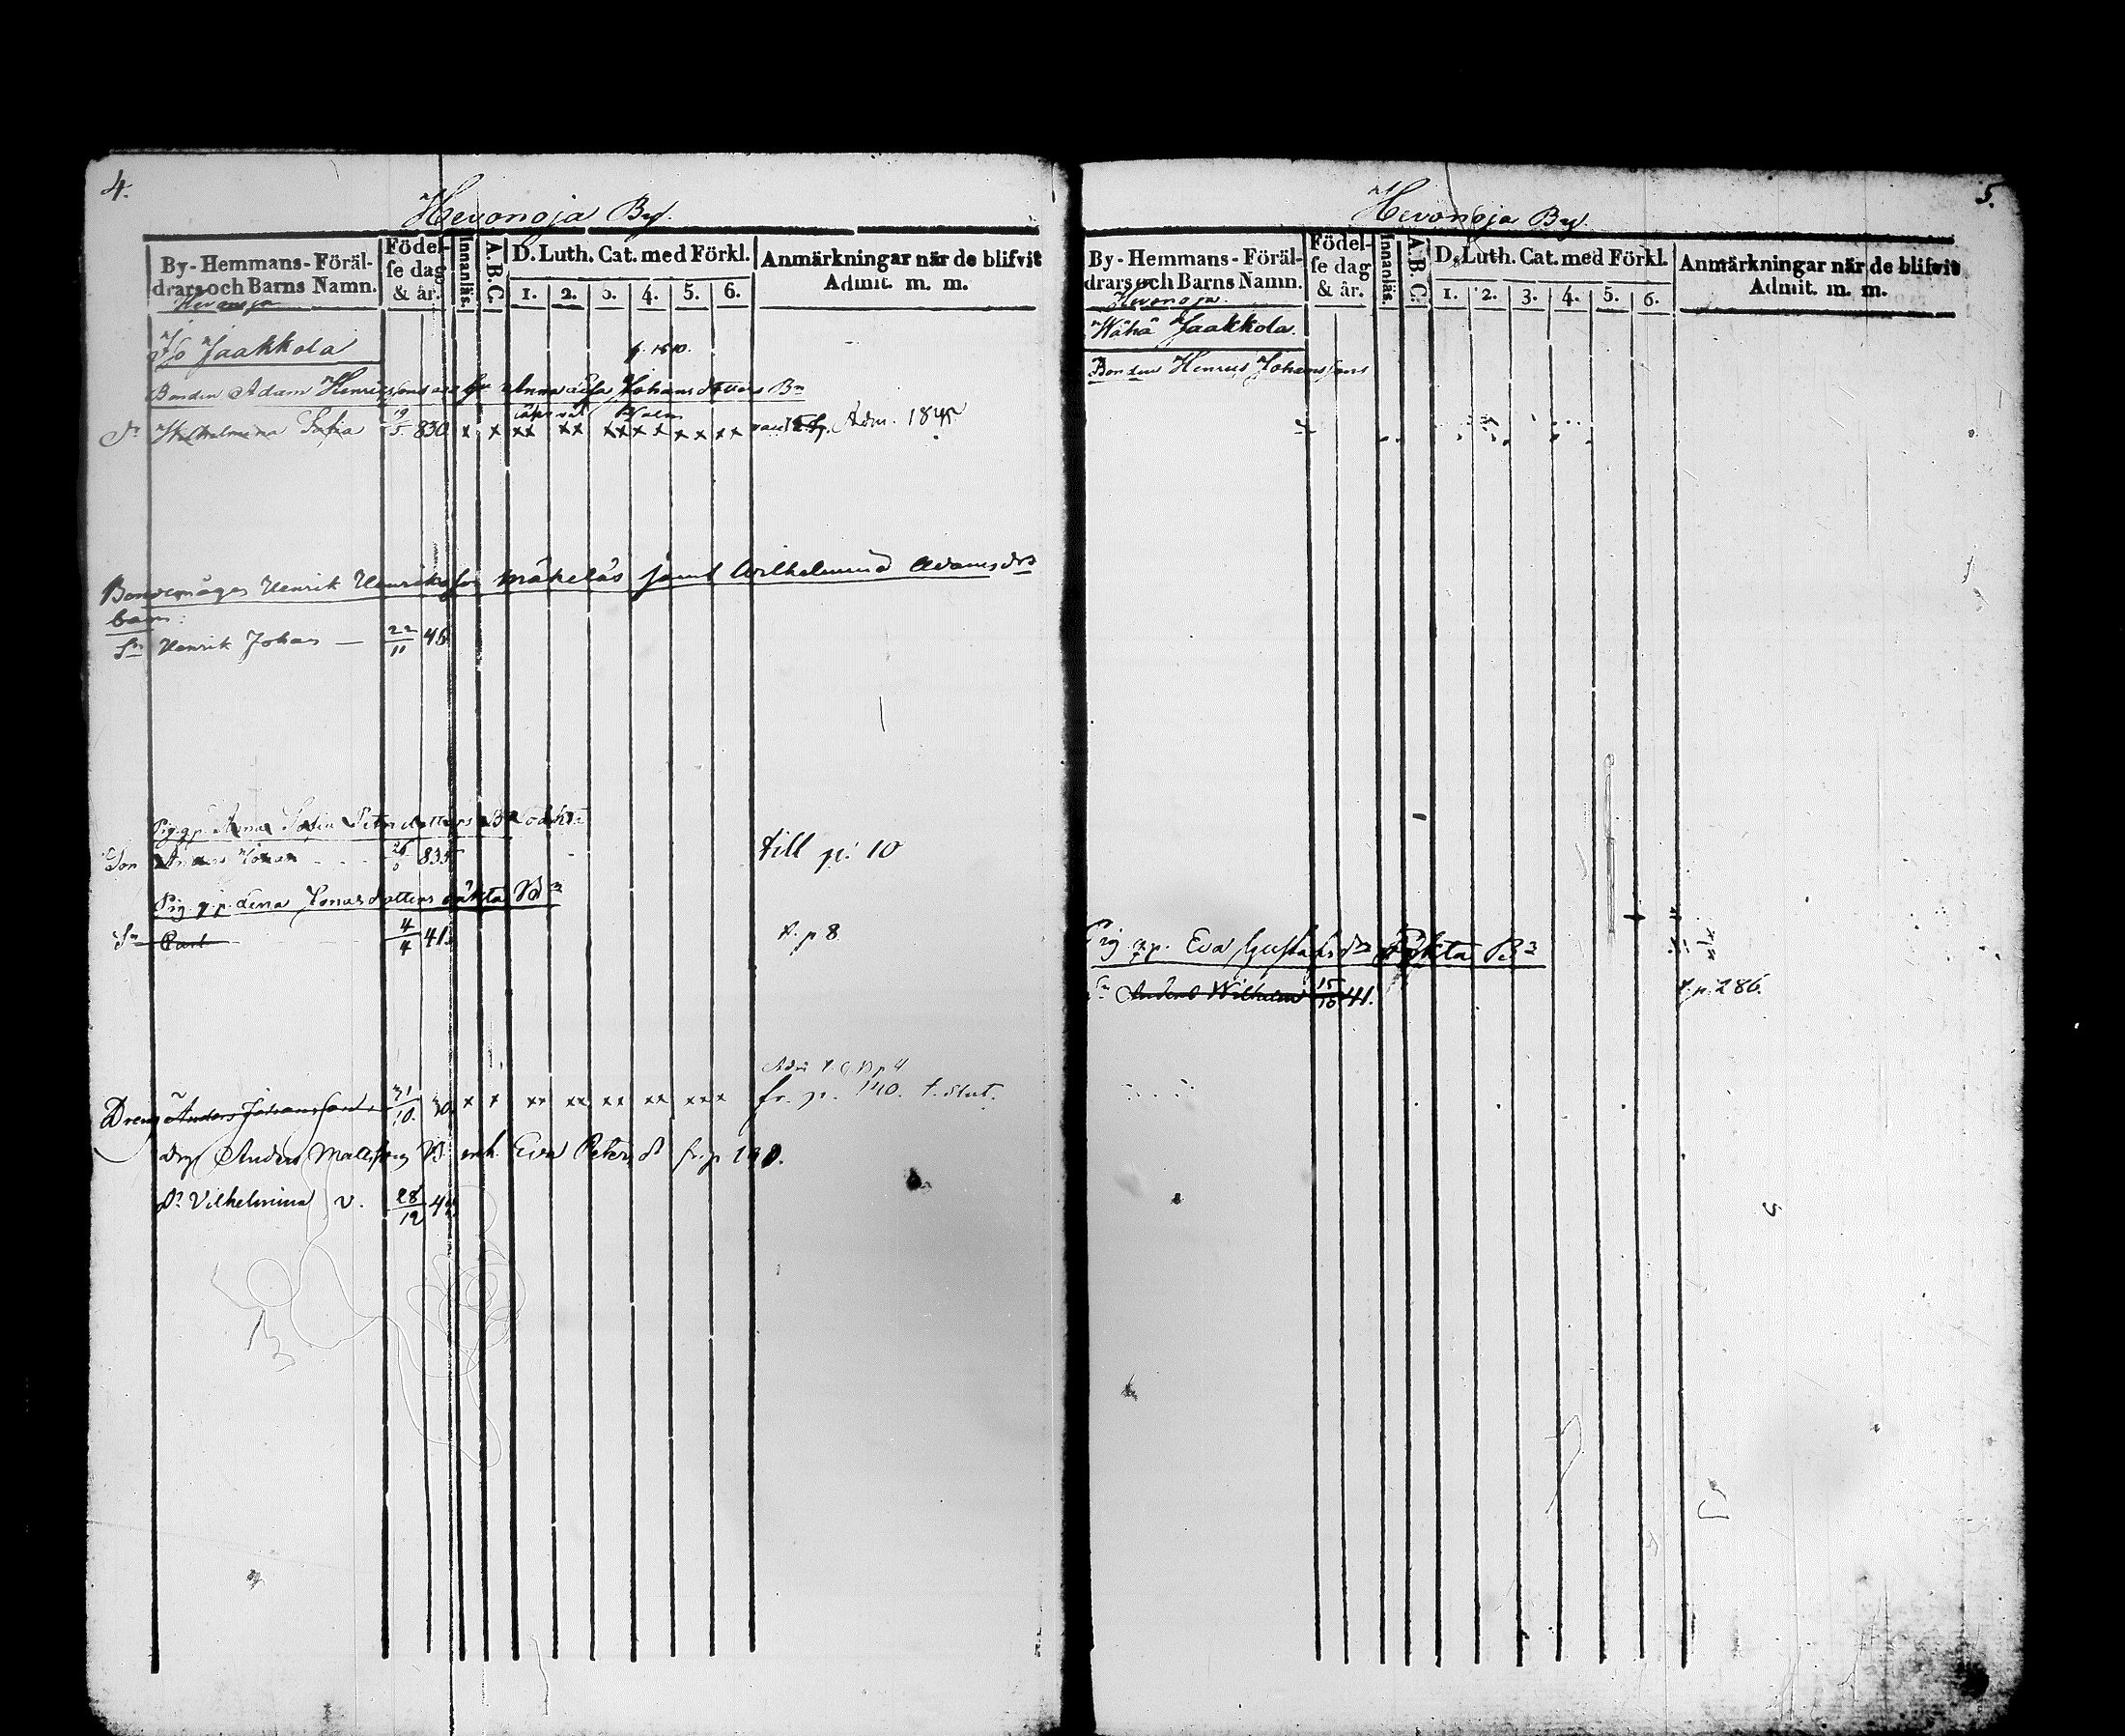 4.
Hevonoja By.
By-Hemmans-Föräl-
drars och Barns Namn.
Födel-
se dag
& år.
Innanläs.
A.B.C.
D. Luth. Cat. med Förkl.
1. 2. 3. 4. 5. 6.
Anmärkningar när de blifvit
Admit. m. m.
Hevonoja
Iso Jaakkola
Bonden Adam Henrics sons Johans dotters Bn
Dr Wilhelmina Sofia 19/5 830 x x xx xx xx xx xx xx Adm. 1845
Bondemågen Henrik Henriksson Mäkeläs samt Wilhelmina Adamsdrs
barn:
Sn Henrik Johan — 22/11 45
Pig. g.p. Anna Sofia Petersdotters
Son Anders Johan 835 till p. 10
Pig. g.p. Lena Jonasdotters oäkta Bn
Sn Carl 4/4 41. t. p 8
Adm
Dreng Anders Johansson 31/10. 30. x x xx xx xx xx xxx fr. p. 140. t. slut.
Drg Anders Mattssons B. enk. Eva Peters d fr. p
Dr Vilhelmina v. 28/12 44
5.
Hevonoja By.
By-Hemmans-Föräl-
drars och Barns Namn.
Födel-
se dag
& år.
Innanläs.
A.B.C.
D. Luth. Cat. med Förkl.
1. 2. 3. 4. 5. 6.
Anmärkningar när de blifvit
Admit. m. m.
Hevonoja.
Wähä Jaakkola.
Bonden Henrics Johanssons
Pig g.p. Eva Gustafsdrs oäkta Bn
Sn Anders Wilhelm 15/10 41. t. p. 286.